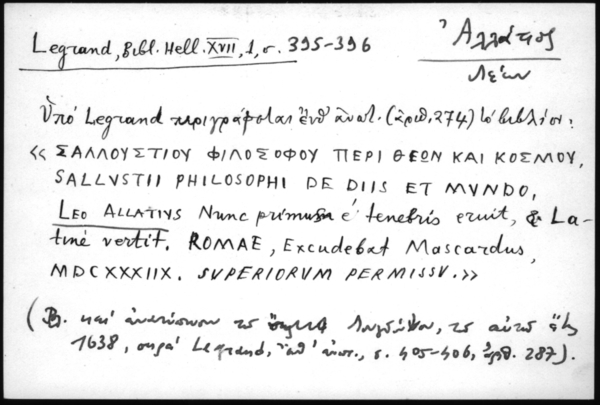 Legrand, Bibl. Hell. XVII, 1, σ. 395-396
Ἀλλάτιος
Λέων
Ὑπό Legrand περιγράφεται ἔνθ' ἀνωτ. (ἀριθ. 274) τό βιβλίον:
«ΣΑΛΛΟΥΣΤΙΟΥ ΦΙΛΟΣΟΦΟΥ ΠΕΡΙ ΘΕΩΝ ΚΑΙ ΚΟΣΜΟΥ,
SALLVSTII PHILOSOPHI DE DIIS ET MVNDO,
LEO ALLATIVS Nunc primum é tenebris eruit, & La-
tiné vertit. ROMAE, Excudebat Mascardus,
MDCXXXIIX. SVPERIORVM PERMISSV.»
(Β. καί ἀνατύπωσιν το Λουγδούνου, το αὐτό ἔτος
1638, παρά Legrand, ἔνθ' ἀνωτ., σ. 405-406, ἀριθ. 287).